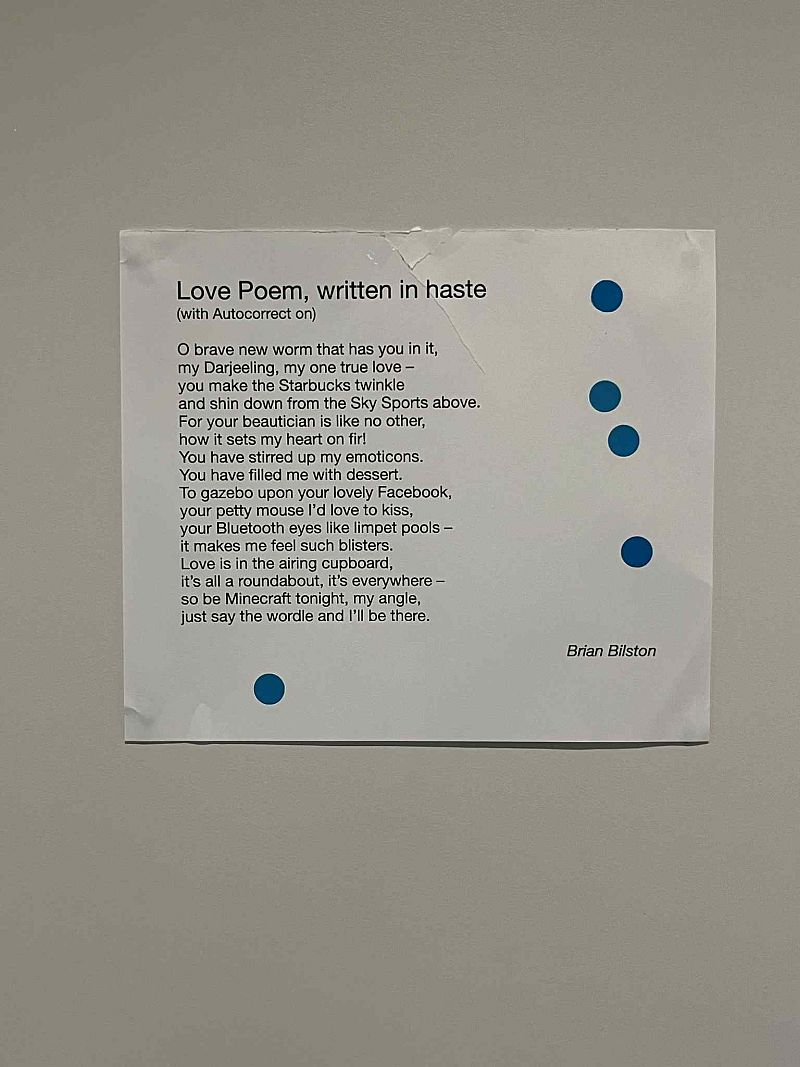 Love Poem, written in haste
(with Autocorrect on)
O brave new worm that has you in it,
my Darjeeling, my one true love –
you make the Starbucks twinkle
and shin down from the Sky Sports above.
For your beautician is like no other,
how it sets my heart on fir!
You have stirred up my emoticons.
You have filled me with dessert.
To gazebo upon your lovely Facebook,
your petty mouse I'd love to kiss,
your Bluetooth eyes like limpet pools –
it makes me feel such blisters.
Love is in the airing cupboard,
it's all a roundabout, it's everywhere –
so be Minecraft tonight, my angle,
just say the wordle and I'll be there.
Brian Bilston